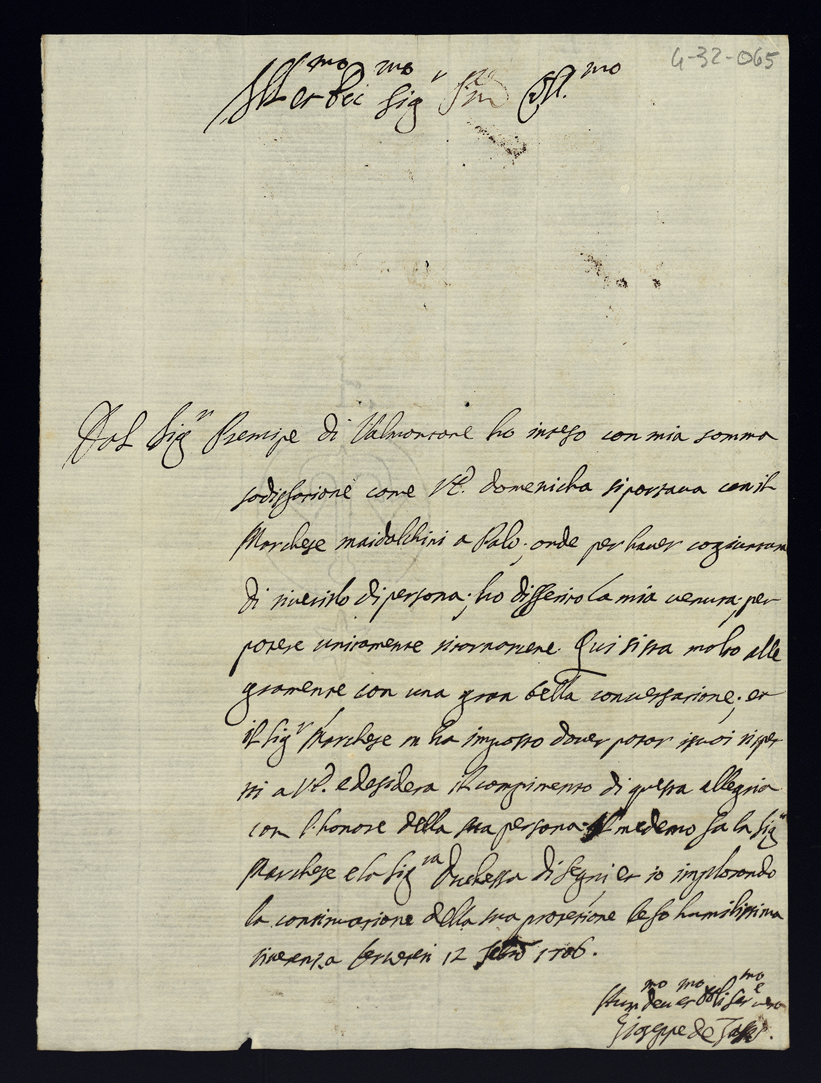 4-32-065
Ill.mo et Ecc.mo Sig.r
Dal Sig.r Prencipe di Valmontone ho inteso con mia somma
sodisfazione come V.E. domenicha si portava con il
Marchese maidalchini a Palo; onde per haver cogiuntura
di riverirlo di persona; ho differito la mia venuta; per
potere unitamente ritornarcene. Qui si sta molto alle
gramente con una gran bella conversazione; et
il Sig.r Marchese m ha imposto dover portar i suoi rispe
tti a V.E. e desidera il compimento di questa allegria
con l'honore della sua persona. Il medemo fa la Sig.ra
Marchese e la Sig.ra Duchessa di Segni; et io implorando
la continuazione della sua protezione le fo humilissima
riverenza Cerveteri 12 1706.
Hum.mo dev.mo et obli.mo ser.e vero
Gioseppe de